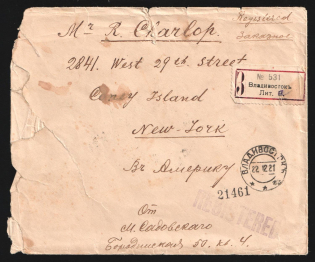 Registered
Заказное
Mr R. Charlop.
2841. West 29th Street
Coney Island
New-York
Въ Америку
№ 531
Владивостокъ
Лит. В.
ВЛАДИВОСТОКЪ
22 12 21
21461
REGISTERED
От
М. Садовскаго
Бородинская 50. кв. 4.